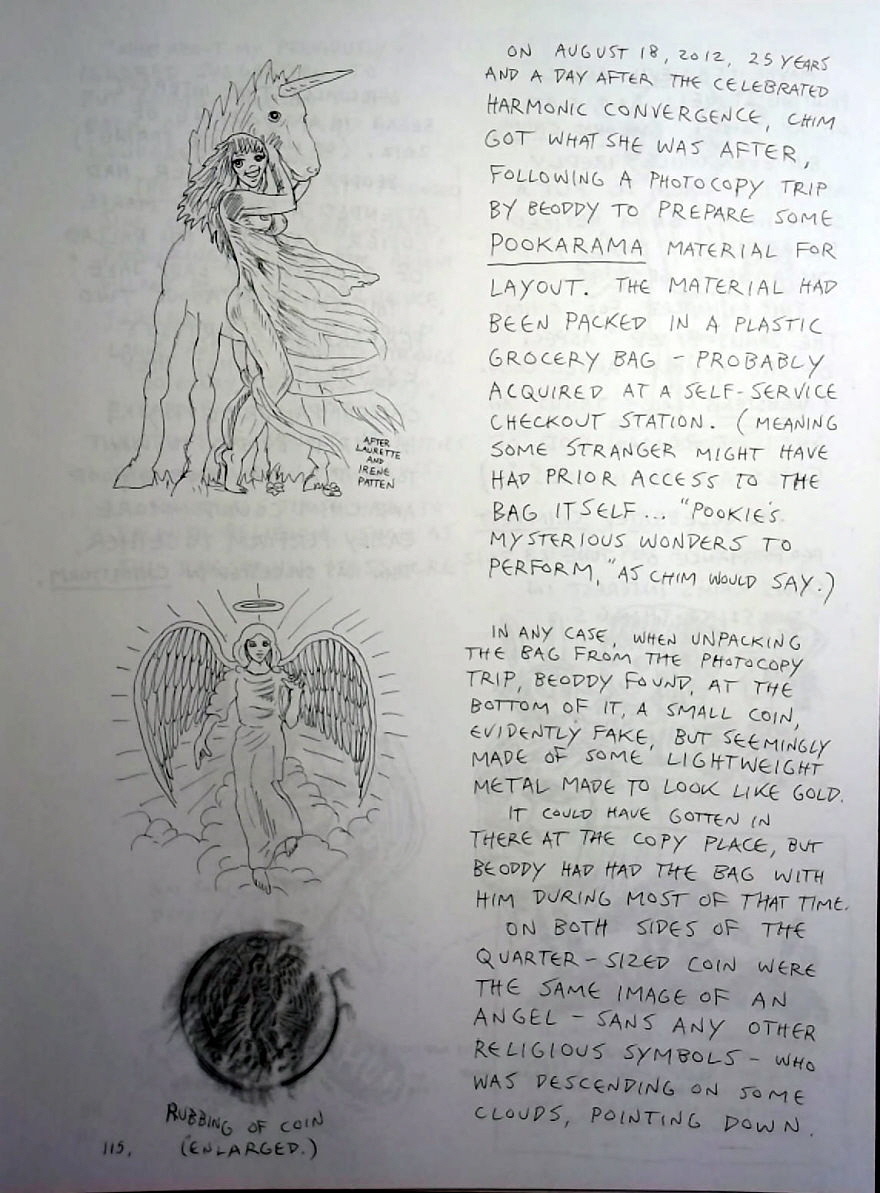 ON AUGUST 18, 2012, 25 YEARS
AND A DAY AFTER THE CELEBRATED
HARMONIC CONVERGENCE, CHIM
GOT WHAT SHE WAS AFTER,
FOLLOWING A PHOTOCOPY TRIP
BY BEODDY TO PREPARE SOME
POOKARAMA MATERIAL FOR
LAYOUT. THE MATERIAL HAD
BEEN PACKED IN A PLASTIC
GROCERY BAG - PROBABLY
ACQUIRED AT A SELF-SERVICE
CHECKOUT STATION. (MEANING
SOME STRANGER MIGHT HAVE
HAD PRIOR ACCESS TO THE
BAG ITSELF... "POOKIE'S
MYSTERIOUS WONDERS TO
PERFORM," AS CHIM WOULD SAY.)
AFTER
LAURETTE
AND
IRENE
PATTEN
IN ANY CASE, WHEN UNPACKING
THE BAG FROM THE PHOTOCOPY
TRIP, BEODDY FOUND, AT THE
BOTTOM OF IT, A SMALL COIN,
EVIDENTLY FAKE, BUT SEEMINGLY
MADE OF SOME LIGHTWEIGHT
METAL MADE TO LOOK LIKE GOLD.
IT COULD HAVE GOTTEN IN
THERE AT THE COPY PLACE, BUT
BEODDY HAD HAD THE BAG WITH
HIM DURING MOST OF THAT TIME.
ON BOTH SIDES OF THE
QUARTER-SIZED COIN WERE
THE SAME IMAGE OF AN
ANGEL - SANS ANY OTHER
RELIGIOUS SYMBOLS - WHO
WAS DESCENDING ON SOME
CLOUDS, POINTING DOWN.
RUBBING OF COIN
(ENLARGED.)
115.